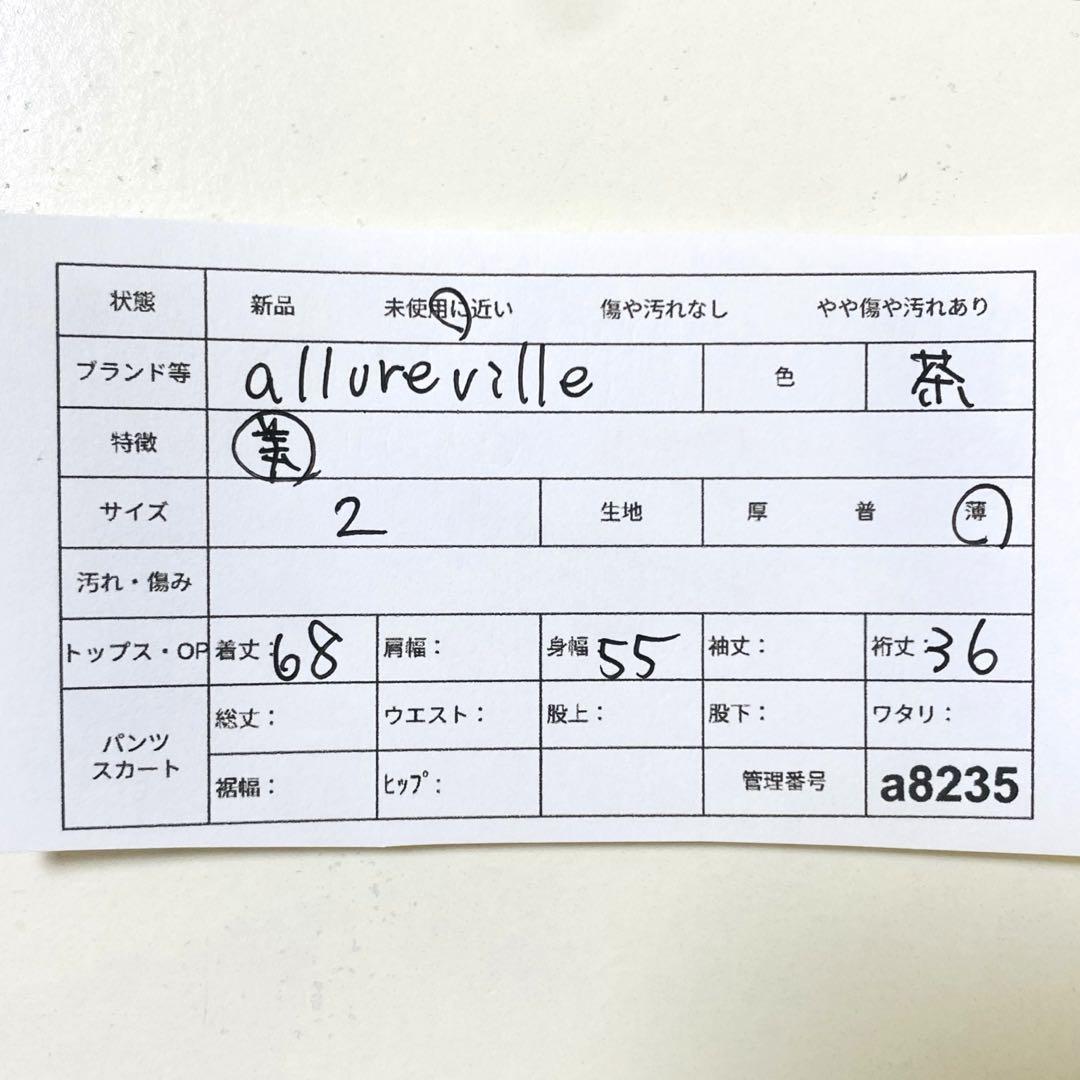 状態 新品 未使用に近い 傷や汚れなし やや傷や汚れあり
ブランド等 allureville 色 茶
特徴
サイズ 2 生地 厚 普 薄
汚れ・傷み
トップス・OP 着丈：68 肩幅： 身幅 55 袖丈： 裄丈：36
パンツ スカート 総丈： ウエスト： 股上： 股下： ワタリ：
裾幅： ヒップ： 管理番号 a8235